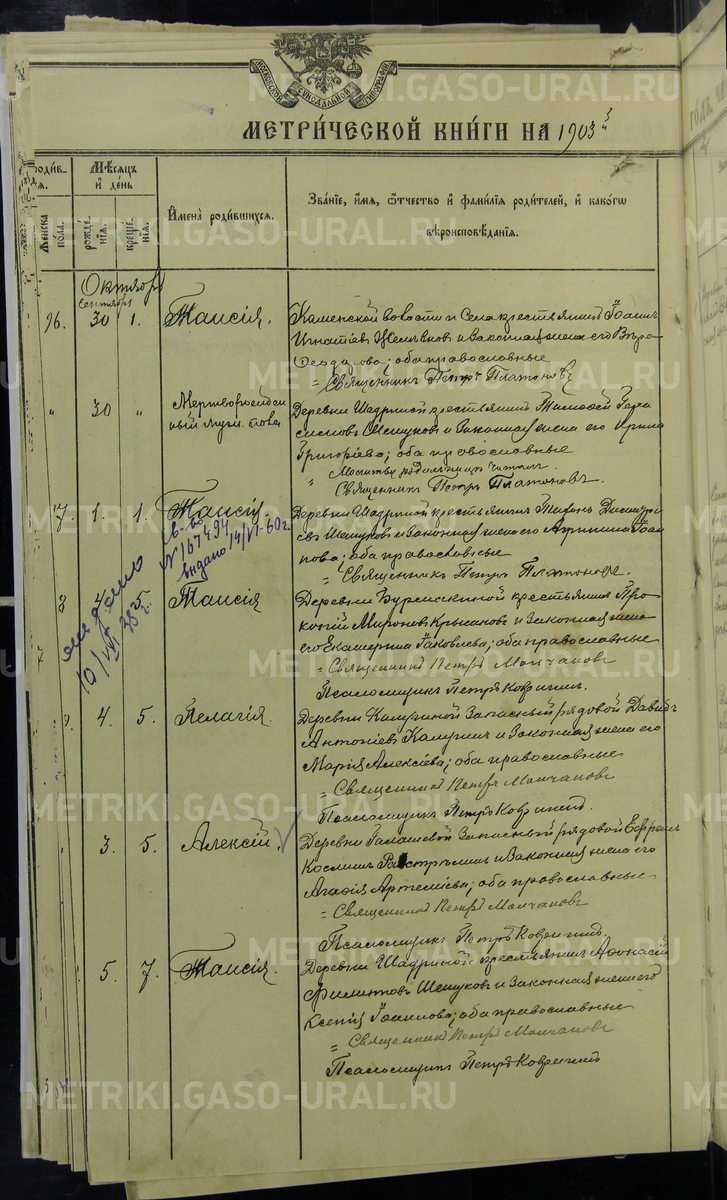 МОСКОВСКОЙ СѴНОДАЛЬНОЙ ТИПОГРАФІИ
МЕТРИ́ЧЕСКОЙ КНИ́ГИ НА 1903 й
Мѣсяцъ и день
рожде́нія.
креще́нія.
Имена̀ роди́вшихся.
Зва́ніе, и́мя, ѻ́тчество и фами́лія роди́телей, и како́гѡ вѣроисповѣ́данія.
Же́нска по́ла.
Октябрь
Сентябрь
96. 30 1. Таисія.
Каменской волости и Села крестьянинъ Іоаннъ
Игнатіев и законная жена его Вѣра
Ѳеодорова; оба православные
= Священникъ Петръ Платоновъ
" 30 " Мертворожден
ный муж. пола
Деревни Шадриной крестьянинъ Тимоѳей Гера
симовъ Шешуковъ и законная жена его Ирина
Григоріева; оба православные
Молитвы родильницѣ читалъ
Священникъ Петръ Платоновъ.
7. 1. 1. Таисія.
св-во
№ 167494
выдано 14/VI-60г.
Деревни Шадриной крестьянинъ Тихонъ Димитрі
евъ Шешуковъ и законная жена его Агрипина Іоан
нова; оба православные
= Священникъ Петръ Платоновъ.
8 4 5. Таисія
10/VII 38 г.
Деревни крестьянинъ Про
копій Мироновъ и законная жена
его Екатерина Іаковлева; оба православные
= Священникъ Петръ Молчановъ
Псаломщикъ Петръ Ковригинъ.
4. 5. Пелагія.
Деревни Калугиной Запасный рядовой Давидъ
Антоніевъ Калугинъ и законная жена его
Марія Алексіева; оба православные
= Священникъ Петръ Молчановъ
Псаломщикъ Петръ Ковригинъ.
3. 5. Алексій. √
Деревни Галашевой Запасный рядовой Ефремъ
Косминъ и законная жена его
Агафія Артеміева; оба православные
= Священникъ Петръ Молчановъ
Псаломщикъ Петръ Ковригинъ.
5. 7. Таисія.
Деревни Шадриной крестьянинъ Аѳонасій
Филиповъ Шешуковъ и законная жена его
Ксенія Іоаннова; оба православные
= Священникъ Петръ Молчановъ
Псаломщикъ Петръ Ковригинъ
METRIKI.GASO-URAL.RU